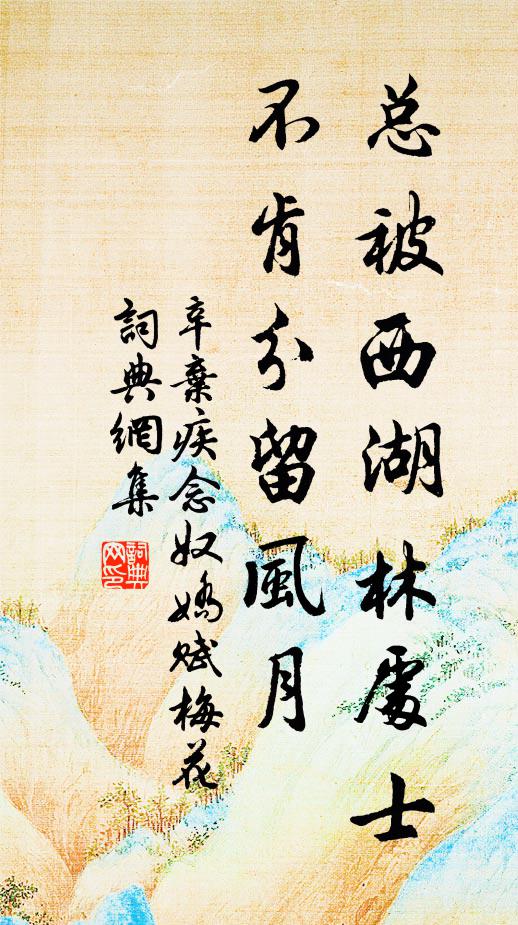 总被西湖林處士
不肯分留風月
辛棄疾念奴嬌賦梅花
詞典網集
詞典网印